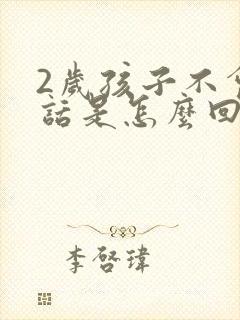 2歲孩子不
話是怎麼回
李啓瑋